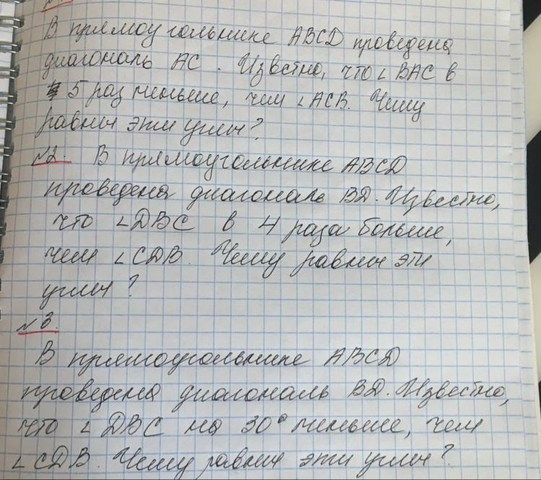 В прямоугольнике ABCD проведена
диагональ AC. Известно, что ∠BAC в
5 раз меньше, чем ∠ACB. Чему
равны эти углы?
№2 В прямоугольнике ABCD
проведена диагональ BD. Известно,
что ∠DBC в 4 раза больше,
чем ∠CDB. Чему равны эти
углы?
№3.
В прямоугольнике ABCD
проведена диагональ BD. Известно,
что ∠DBC на 30° меньше, чем
∠CDB. Чему равны эти углы?